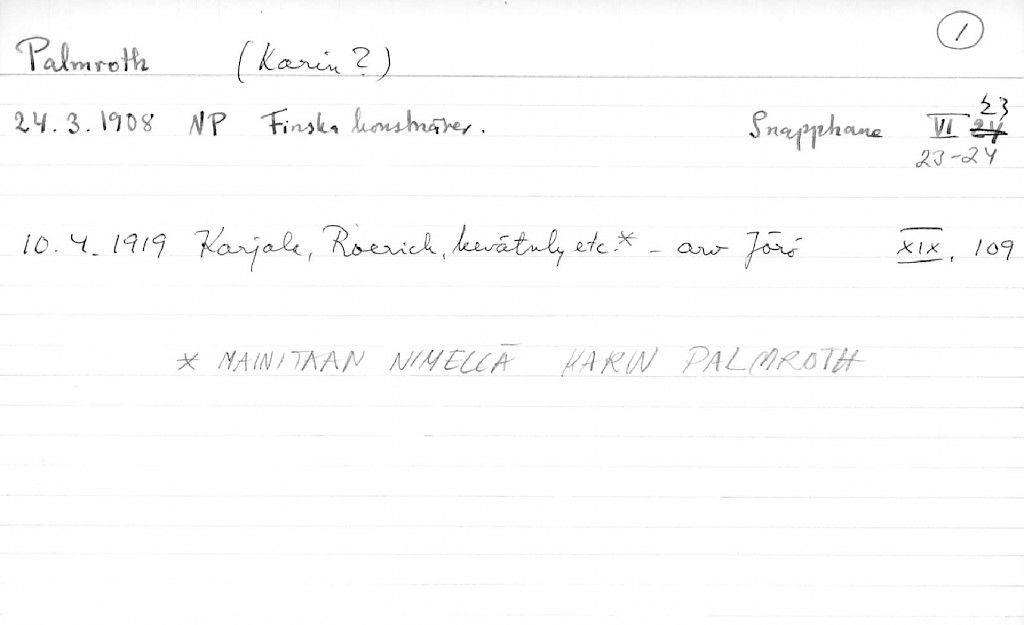 1
Palmroth (Karin?)
24.3.1908 NP Finska konstnärer. Snapphane VI 24 23
23-24
10.4.1919 Karjala, Roerich, kevätnly etc.* - arv Jörö XIX, 109
* MAINITAAN NIMELLÄ KARIN PALMROTH